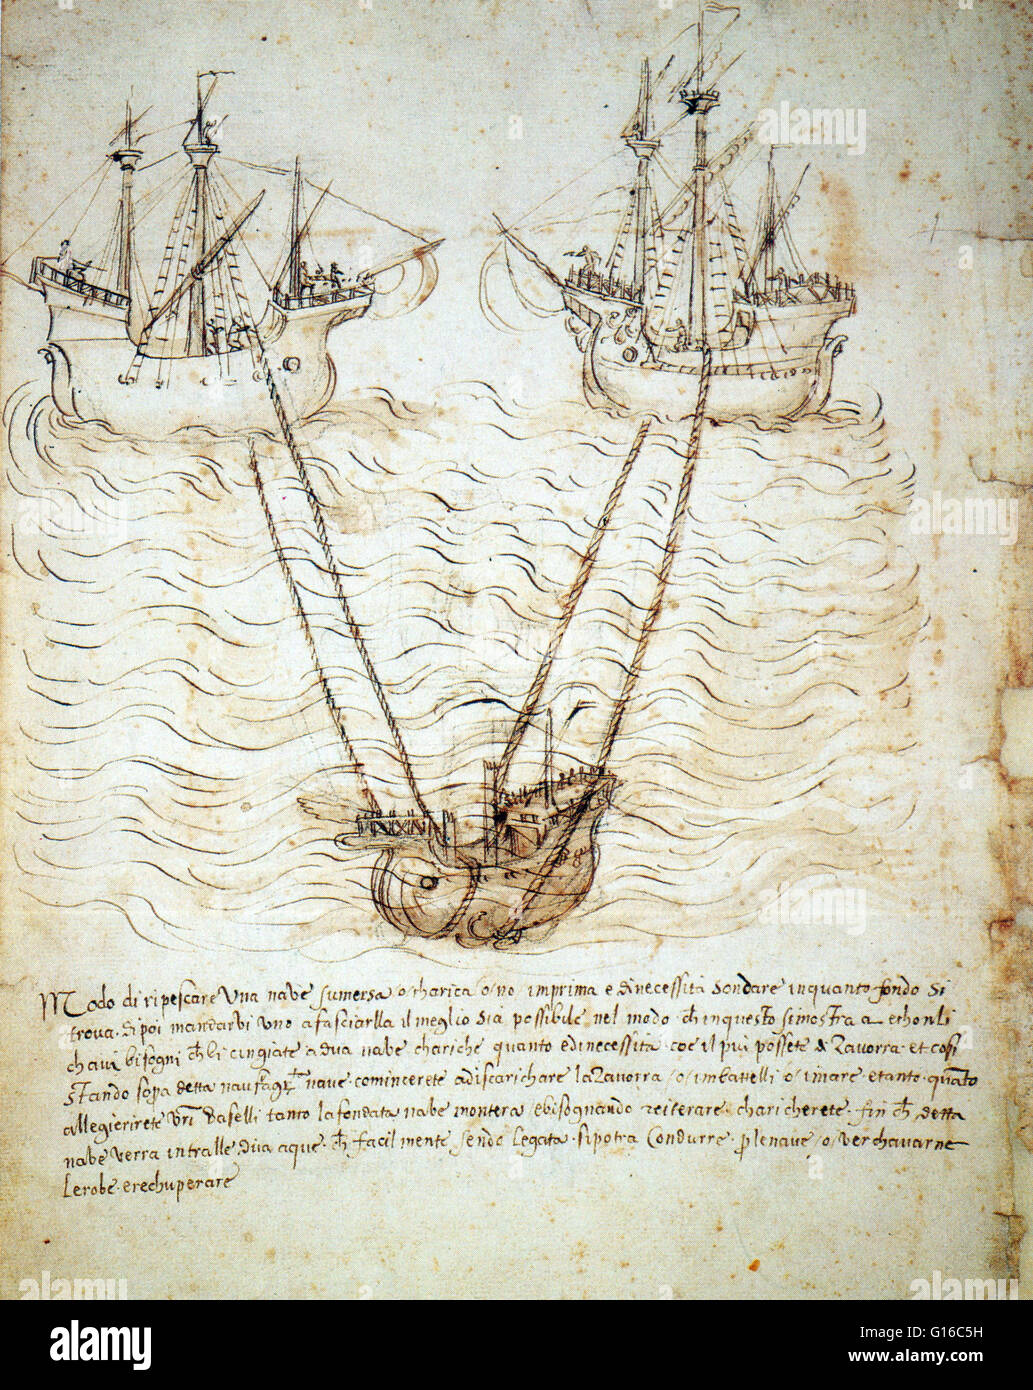 Modo di ripescare una nave sumersa o charica o no imprima e di necessità sondare inquanto fondo si
trova. di poi mandarvi uno a fasciarlla il meglio sia possibile nel modo ch inquesto si mostra a
chavi bisogni ch li cingiate a dua nave chariche quanto è di necessita. coe il più possete di zavorra. et cosi
stando sopa detta nave comincerete a discarichare la zavorra o imbattelli o i mare. e tanto quato
allegierirete vasselli tanto la fondata nave montera e bisognando reiterare. charicherete. fin ch detta
nave verra intralle dua aque. ch facilmente sendo legata. si potra condurre. o ver chavarne
le robe. e rechuperare
alamy
Image ID: G16C5H
www.alamy.com